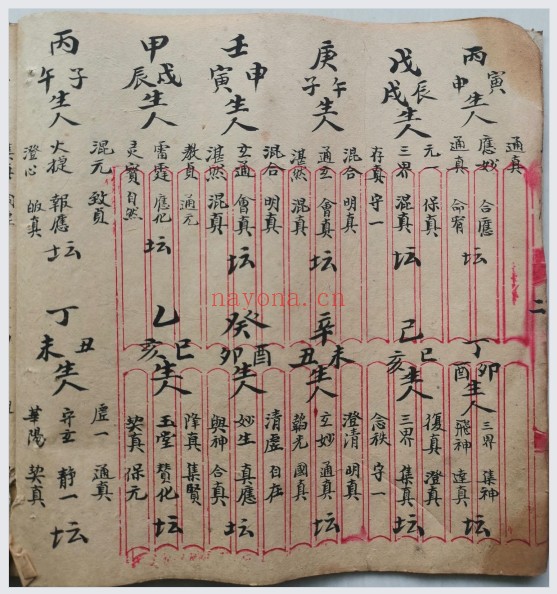 通真
丙寅申生人
應妙 合應
通真 命宥
坛
戊辰戌生人
元一 保真
三界 混真
存真 守一
坛
庚午子生人
混合 明真
通玄 會真
湛然 混真
坛
壬申寅生人
混合 明真
玄通 會真
湛然 混真
坛
甲戌辰生人
教真 通元
雷霆 應化
灵寳 自然
坛
丙子午生人
混元 致真
火捷 報應
澄心 皈真
坛
丁卯酉生人
三界 集神
飛神 達真
坛
己巳亥生人
復真 澄真
三界 集真
念秩 守一
坛
辛未丑生人
澄清 明真
玄妙 通真
韜光 國真
坛
癸酉卯生人
清虚 自在
妙生 真應
與神 合真
坛
乙巳亥生人
降真 集賢
玉堂 贊化
契真 保元
坛
丁丑未生人
虚一 通真
守玄 靜一
華陽 契真
坛
二
nayona.cn